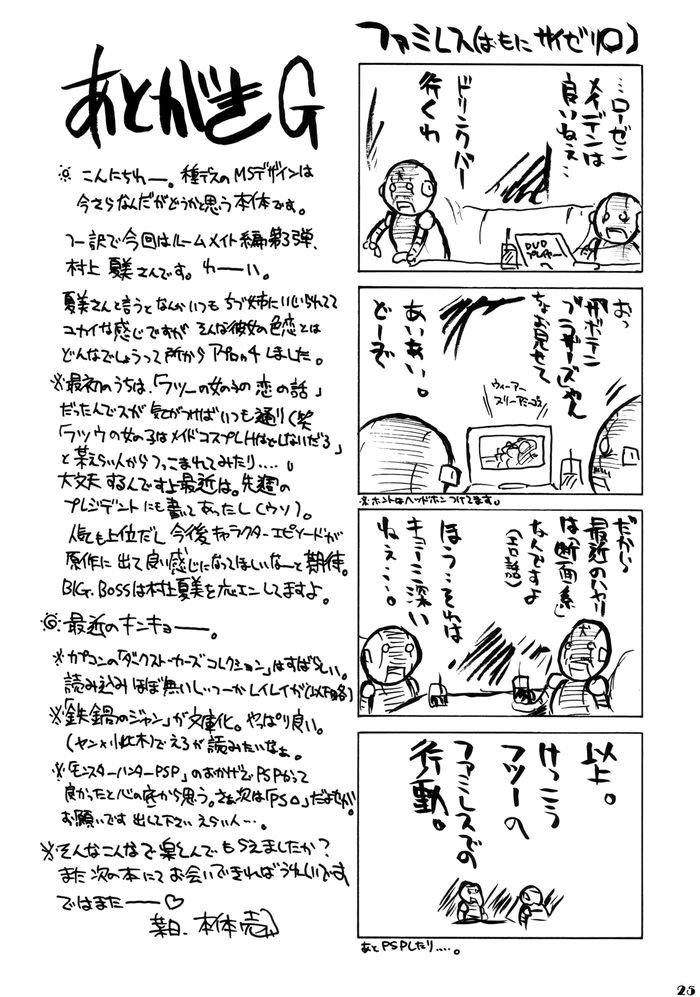 あとがきG
こんにちわー。種デスのMSデザインは
今さらなんだがどうかと思う本体です。
つー訳で今回はルームメイト編第3弾、
村上夏美さんです。わーい。
夏美さんと言うとなんかいつもちづ姉にいじられてて
ユカイな感じですがそんな彼女の色恋とは
どんなでしょうって所からアプローチしました。
※最初のうちは、「フツーの女の子の恋の話」
だったんですが気がつけばいつも通り(笑
「フツウの女の子はメイドコスプレHはとしないだろ」
と某えらい人からつっこまれてみたり‥‥。
大丈夫するんですよ最近は。先週の
プレジデントにも書いてあったし(ウソ)。
人気も上位だし今後キャラクターエピソードが
原作に出て良い感じになってほしいなーと期待。
BIG.BOSSは村上夏美を応エンしてますよ。
◎最近のキンキョー。
※カプコンの「ダークストーカーズコレクション」はすばらしい。
読み込みほぼ無いしっつーかレイレイが(以下略)
※「鉄鍋のジャン」が文庫化。やっぱり良い。
(ヤン×小此木)でえろが読みたいなぁ。
※「モンスターハンターPSP」のおかげでPSPかって
良かったと心の底から思う。さぁ次は「PSO」だよせがわ。
お願いです出して下さいえらい人…。
※そんなこんなで楽しんでもらえましたか?
また次の本にてお会いできればうれしいです
ではまたーー♡
某日.本体売
ファミレス(おもにサイゼリ○)
…ローゼン
メイデンは
良いねぇ…
ドリンクバー
行くわ
DVD
プレイヤー
へ
おっ
「サボテン
ブラザーズ」やん
ちょお見せて
あいあい。
どーぞ
ウィーアー
スリーアミーゴス
※ホントはヘッドホンつけてます。
だから
最近のハヤリ
は「断面系」
なんですよ
(エロ話)
ほう…それは
キョーミ深い
ねぇ…。
以上。
けっこう
フツーの
ファミレスでの
行動。
あとPSPしたり‥‥。
25